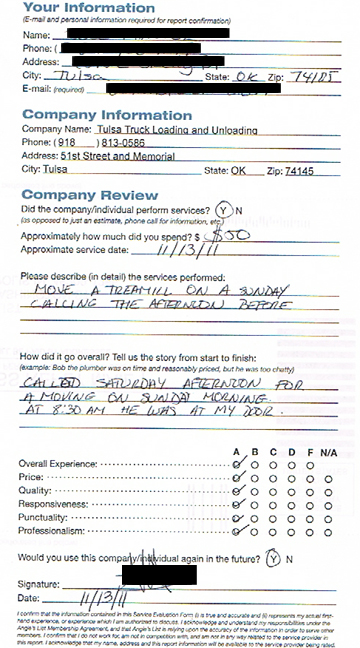 Your Information
(E-mail and personal information required for report confirmation)
Name:
Phone: (
Address:
City: Tulsa State: OK Zip: 74105
E-mail: (required)
Company Information
Company Name: Tulsa Truck Loading and Unloading
Phone: (918 ) 813-0586
Address: 51st Street and Memorial
City: Tulsa State: OK Zip: 74145
Company Review
Did the company/individual perform services? Y N
(as opposed to just an estimate, phone call for information, etc.)
Approximately how much did you spend? $ $50
Approximate service date: 11/13/11
Please describe (in detail) the services performed:
MOVE A TREAMILL ON A SUNDAY
CALLING THE AFTERNOON BEFORE
How did it go overall? Tell us the story from start to finish:
(example: Bob the plumber was on time and reasonably priced, but he was too chatty)
CALLED SATURDAY AFTERNOON FOR
A MOVING ON SUNDAY MORNING.
AT 8:30 AM HE WAS AT MY DOOR.
A B C D F N/A
Overall Experience:
Price:
Quality:
Responsiveness:
Punctuality:
Professionalism:
Would you use this company/individual again in the future? Y N
Signature:
Date: 11/13/11
I confirm that the information contained in this Service Evaluation Form (i) is true and accurate and (ii) represents my actual first-
hand experience, or experience which I am authorized to discuss. I acknowledge and understand my responsibilities under the
Angie's List Membership Agreement, and that Angie's List is relying upon the accuracy of the information in order to serve other
members. I confirm that I do not work for, am not in competition with, and am not in any way related to the service provider in
this report. I acknowledge that my name, address and this report information will be available to the service provider being rated.